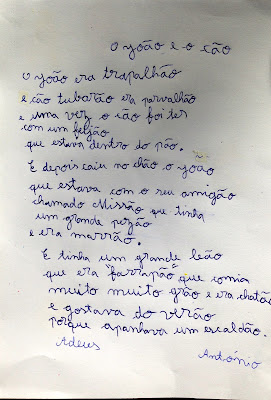 O João e o cão
O João era trapalhão
e cão tubarão era parvalhão
e uma vez o cão foi ter
com um feijão
que estava dentro do pão.
E depois caiu no chão o João
que estava com o seu amigão
chamado Missão que tinha
um grande pezão
e era marrão.
E tinha um grande leão
que era "farrapão" que comia
muito muito grão e era chatão
e gostava do verão
porque apanhava um escaldão.
Adeus
António